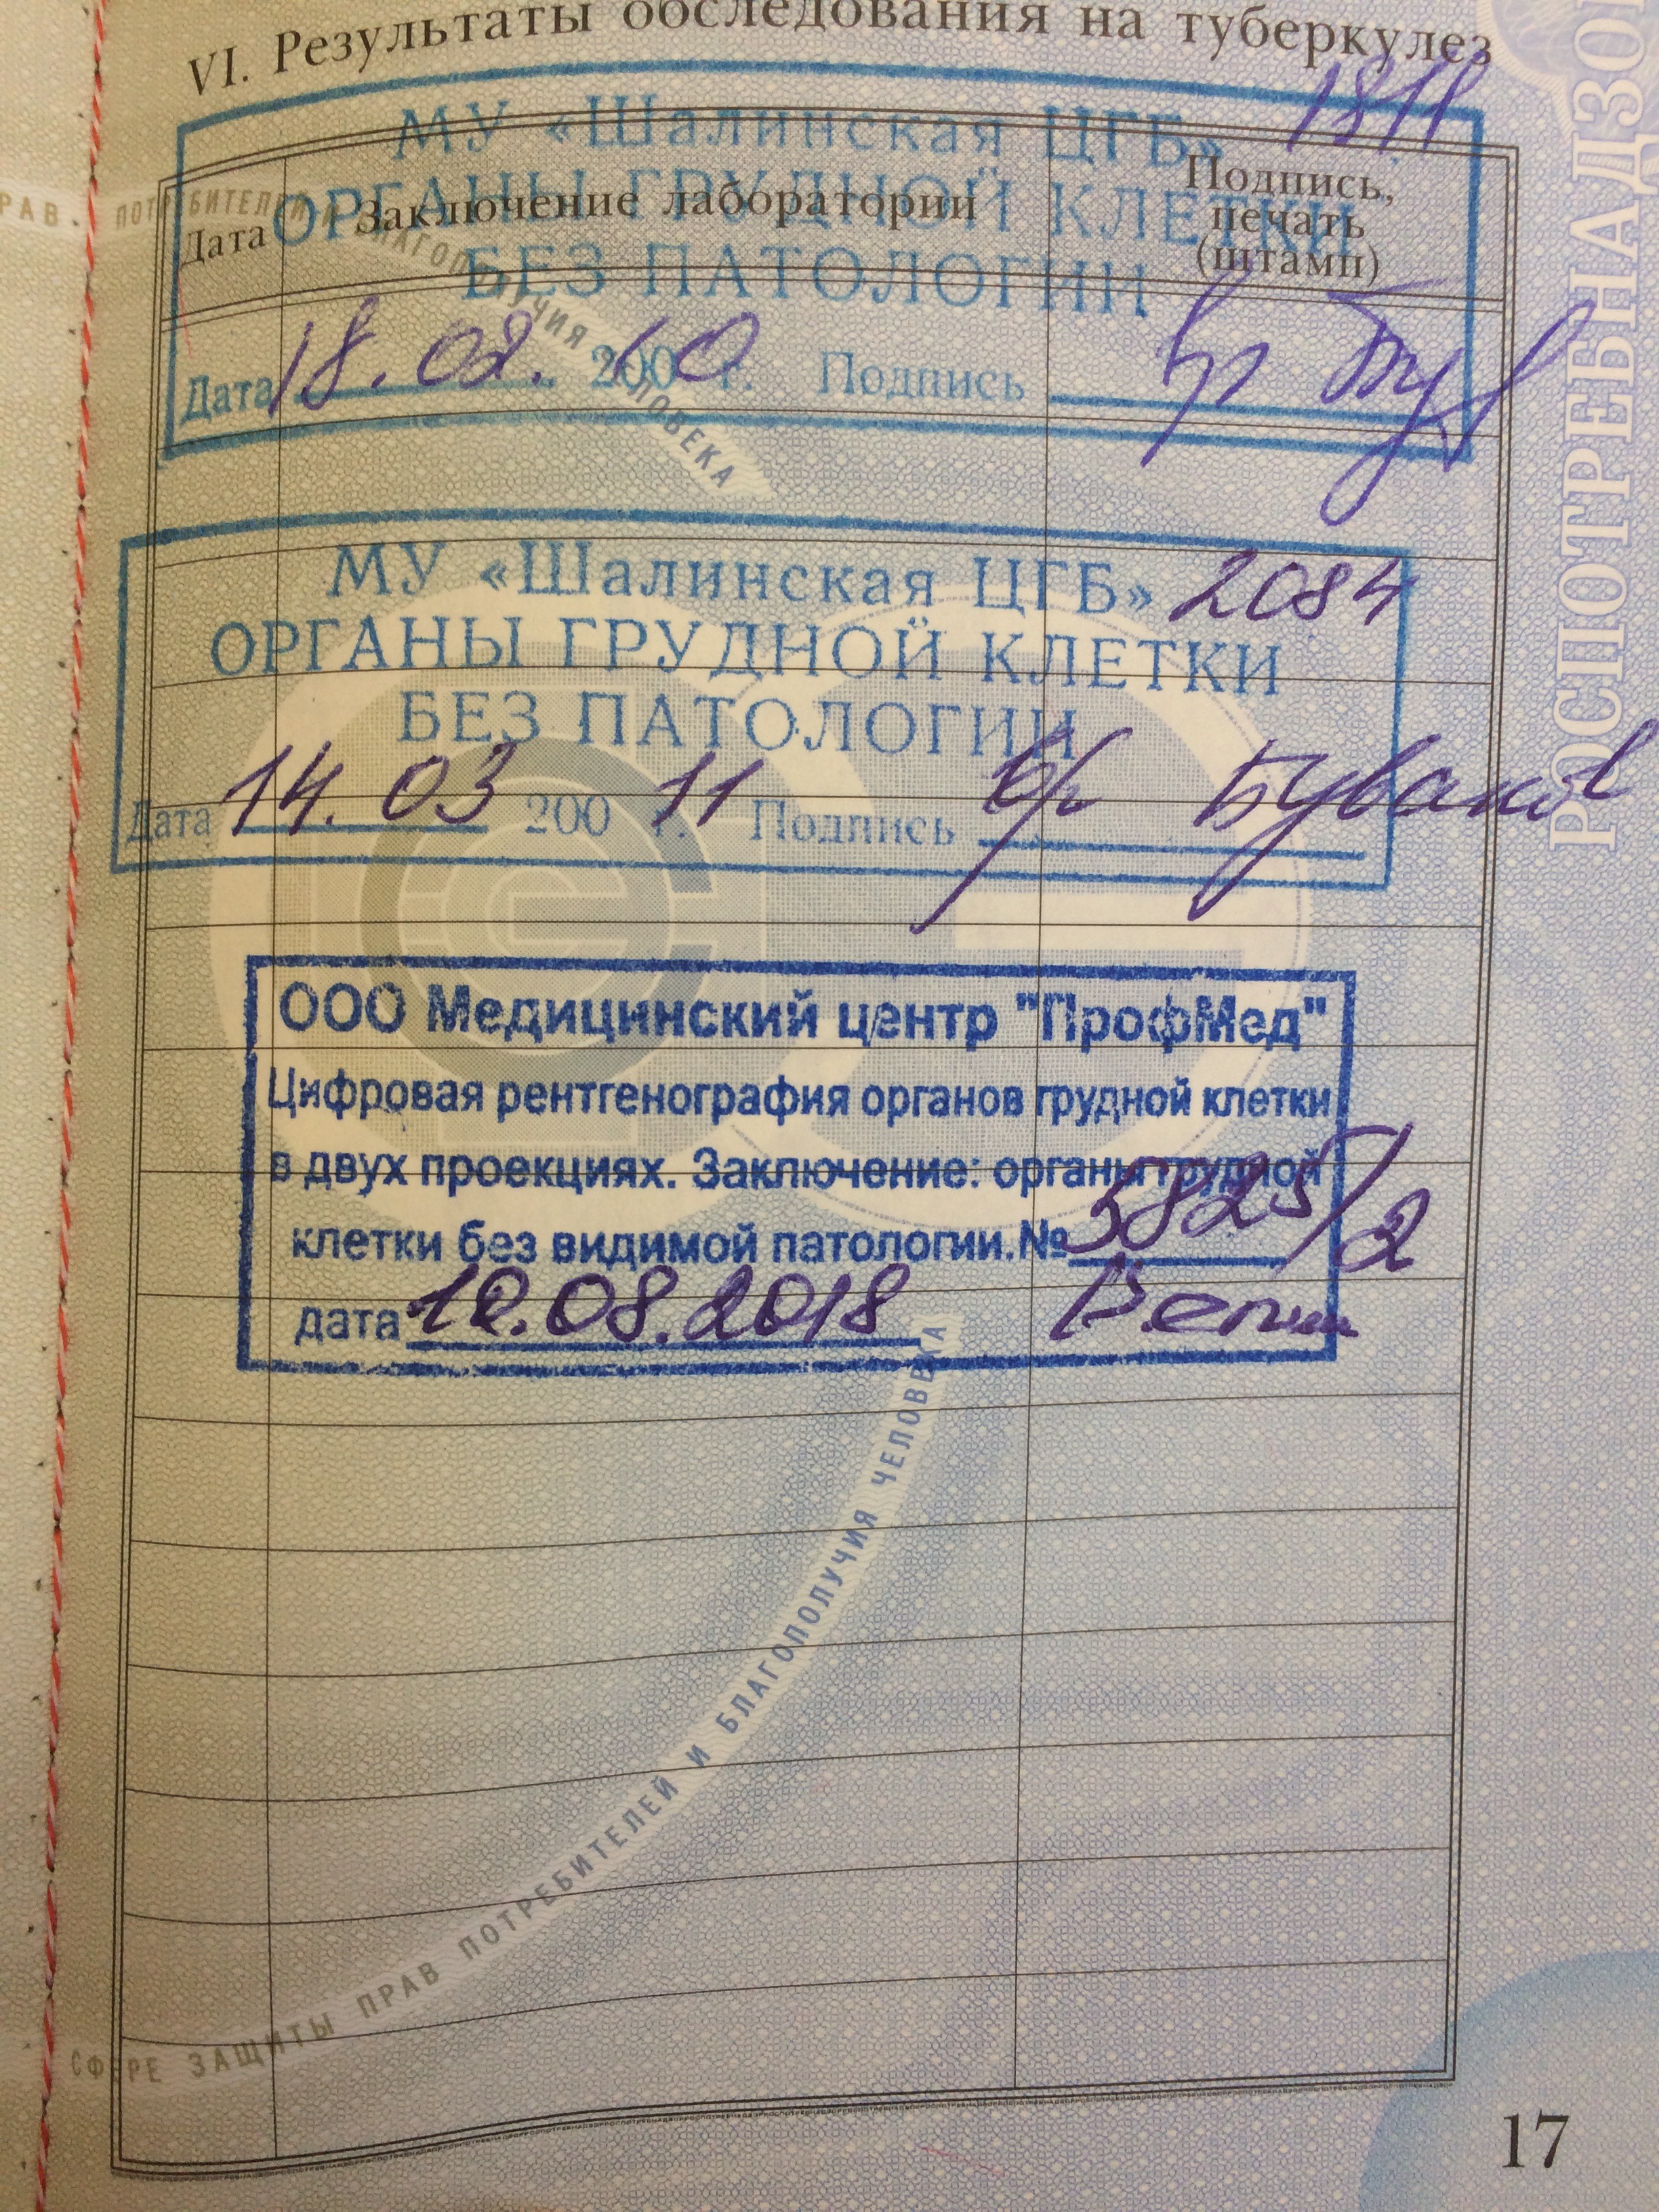 VI. Результаты обследования на туберкулез
1811
МУ «Шалинская ЦГБ»
ОРГАНЫ ГРУДНОЙ КЛЕТКИ
БЕЗ ПАТОЛОГИИ
Дата
Заключение лаборатории
Подпись,
печать
(штамп)
Дата 18.02. 200 10 г. Подпись
МУ «Шалинская ЦГБ» 2084
ОРГАНЫ ГРУДНОЙ КЛЕТКИ
БЕЗ ПАТОЛОГИИ
Дата 14.03 200 11 г. Подпись
ООО Медицинский центр "ПрофМед"
Цифровая рентгенография органов грудной клетки
в двух проекциях. Заключение: органы грудной
клетки без видимой патологии.№ 5825/2
дата 10.08.2018
РАВ ПОТРЕБИТЕЛЕЙ И БЛАГОПОЛУЧИЯ ЧЕЛОВЕКА
СФЕРЕ ЗАЩИТЫ ПРАВ ПОТРЕБИТЕЛЕЙ И БЛАГОПОЛУЧИЯ ЧЕЛОВЕКА
РОСПОТРЕБНАДЗО
17